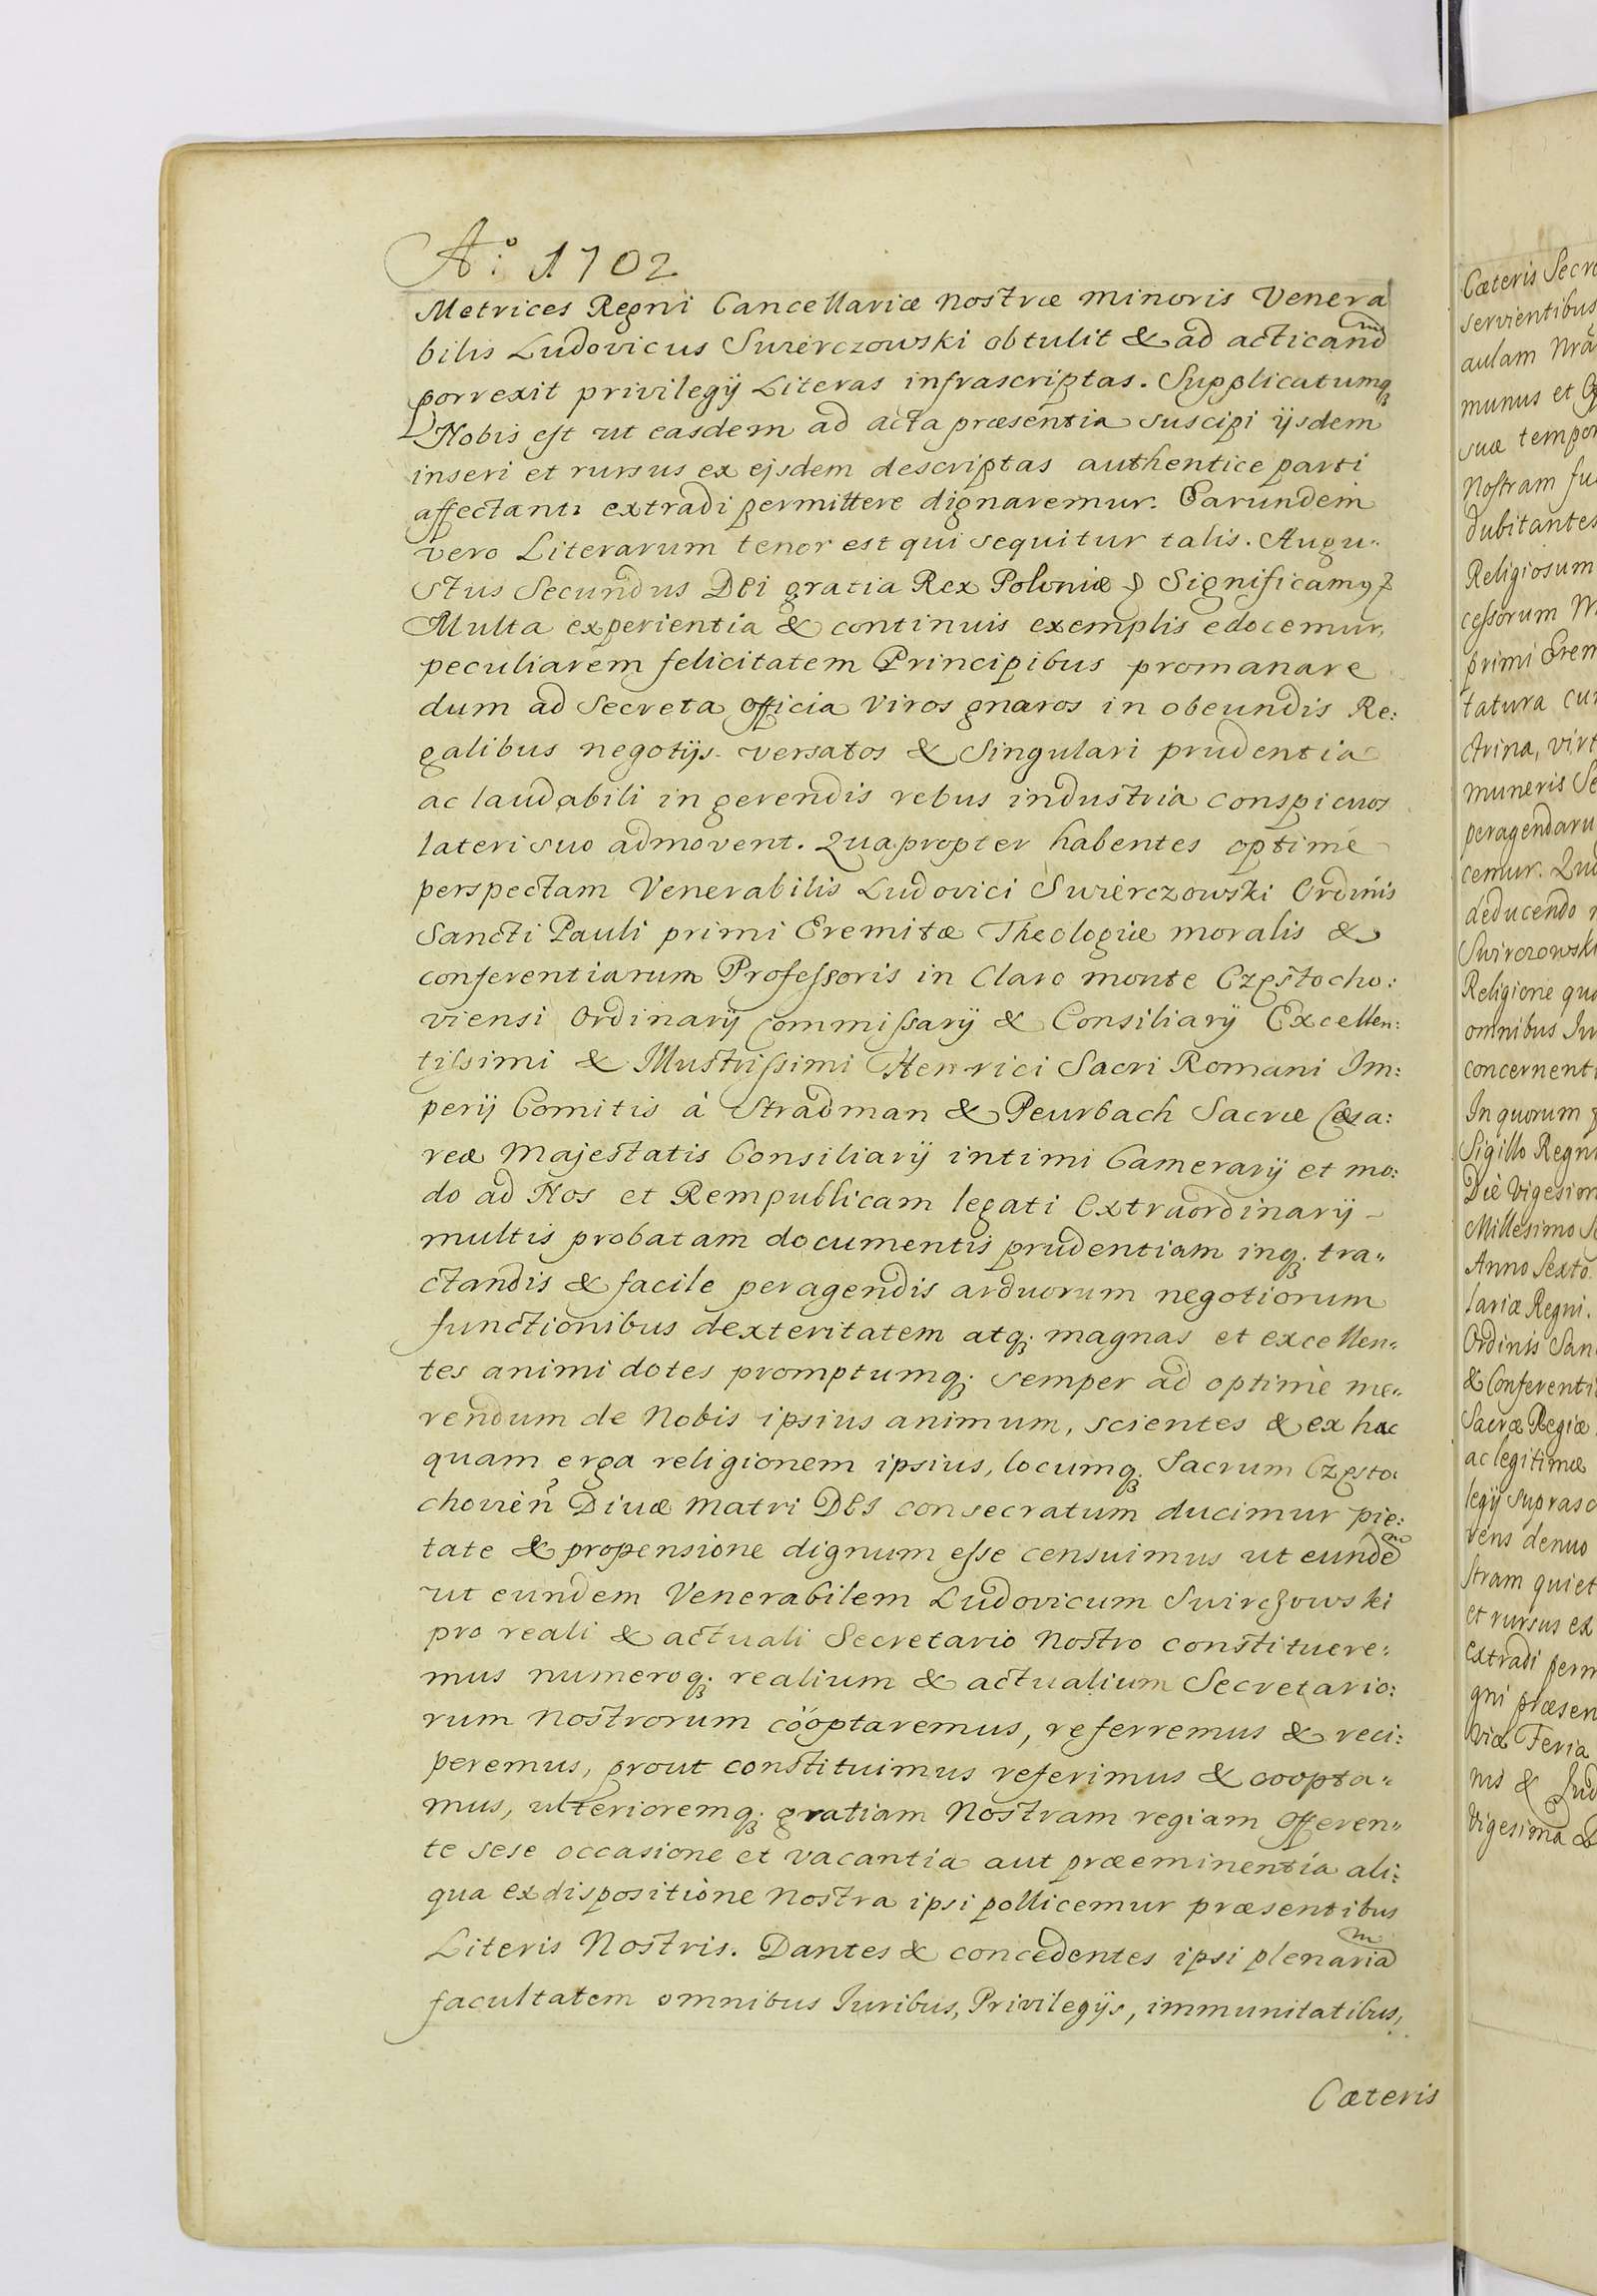 A:º 1702
Metrices Regni Cancellariæ nostræ minoris Venera
bilis Ludovicus Swierczowski obtulit & ad acticandm
porrexit privilegij Literas infrascriptas. Supplicatumq;
Nobis est ut easdem ad acta præsentia suscipi ijsdem
inseri et rursus ex ejsdem descriptas authentice parti
affectanti extradi permittere dignaremur. Earundem
vero Literarum tenor est qui sequitur talis. Augu„
stus Secundus DEi gratia Rex Poloniæ & Significamq
Multa experientia & continuis exemplis edocemur,
peculiarem felicitatem Principibus promanare
dum ad Secreta officia viros gnaros in obeundis Re:
galibus negotijs versatos & Singulari prudentia
ac laudabili in gerendis rebus industria conspicuos
lateri suo admovent. Quapropter habentes optimé
perspectam Venerabilis Ludovici Swierczowski Ordinis
Sancti Pauli primi Eremitæ Theologiæ moralis &
conferentiarum Professoris in Claro monte Częstocho:
viensi Ordinarij Commissarij & Consiliarij Excellen:
tissimi & Illustrissimi Henrici Sacri Romani Im:
perij Comitis à Stradman & Peurbach Sacræ Cæsa:
reæ Majestatis Consiliarij intimi Camerarij et mo:
do ad Nos et Rempublicam legati Extraordinarij
multis probatam documentis prudentiam inq; tra„
ctandis & facile peragendis arduorum negotiorum
functionibus dexteritatem atq; magnas et excellen„
tes animi dotes promptumq; semper ad optimè me„
rendum de Nobis ipsius animum, scientes & ex hac
quam erga religionem ipsius, locumq; Sacrum Często:
chovien̄ Divæ Matri DEI consecratum ducimur pie:
tate & propensione dignum esse censuimus ut eundem
ut eundem Venerabilem Ludovicum Swirczowski
pro reali & actuali Secretario nostro constituere:
mus numeroq; realium & actualium Secretario:
rum nostrorum cöoptaremus, referremus & reci:
peremus, prout constituimus referimus & coopta„
mus, ulterioremq; gratiam Nostram regiam offeren„
te sese occasione et vacantia aut præeminentia ali:
qua ex dispositione nostra ipsi pollicemur præsentibus
Literis Nostris. Dantes & concedentes ipsi plenariam
facultatem omnibus Juribus, Privilegijs, immunitatibus,
Cæteris
Cæteris Secr
servientibus
aulam Nrã
munus et
suæ tempor
Nostram fu
dubitantes
Religiosum
cessorum
primi Erem
tatura cu
ctrina, virt
muneris Se
peragendaru
cemur. Qu
deducendo
Swirczowsk
Religione qu
omnibus Ju
concernent
In quorum
Sigillo Regn
Die Vigesim
Millesimo S
Anno Sexto
lariæ Regni.
Ordinis San
& Conferenti
Sacræ Regiæ
ac legitimæ
legij suprasc
rens denuo
stram quiet
et rursus ex
extradi perm
gni præsen
via Feria
nis & Jud
Vigesima